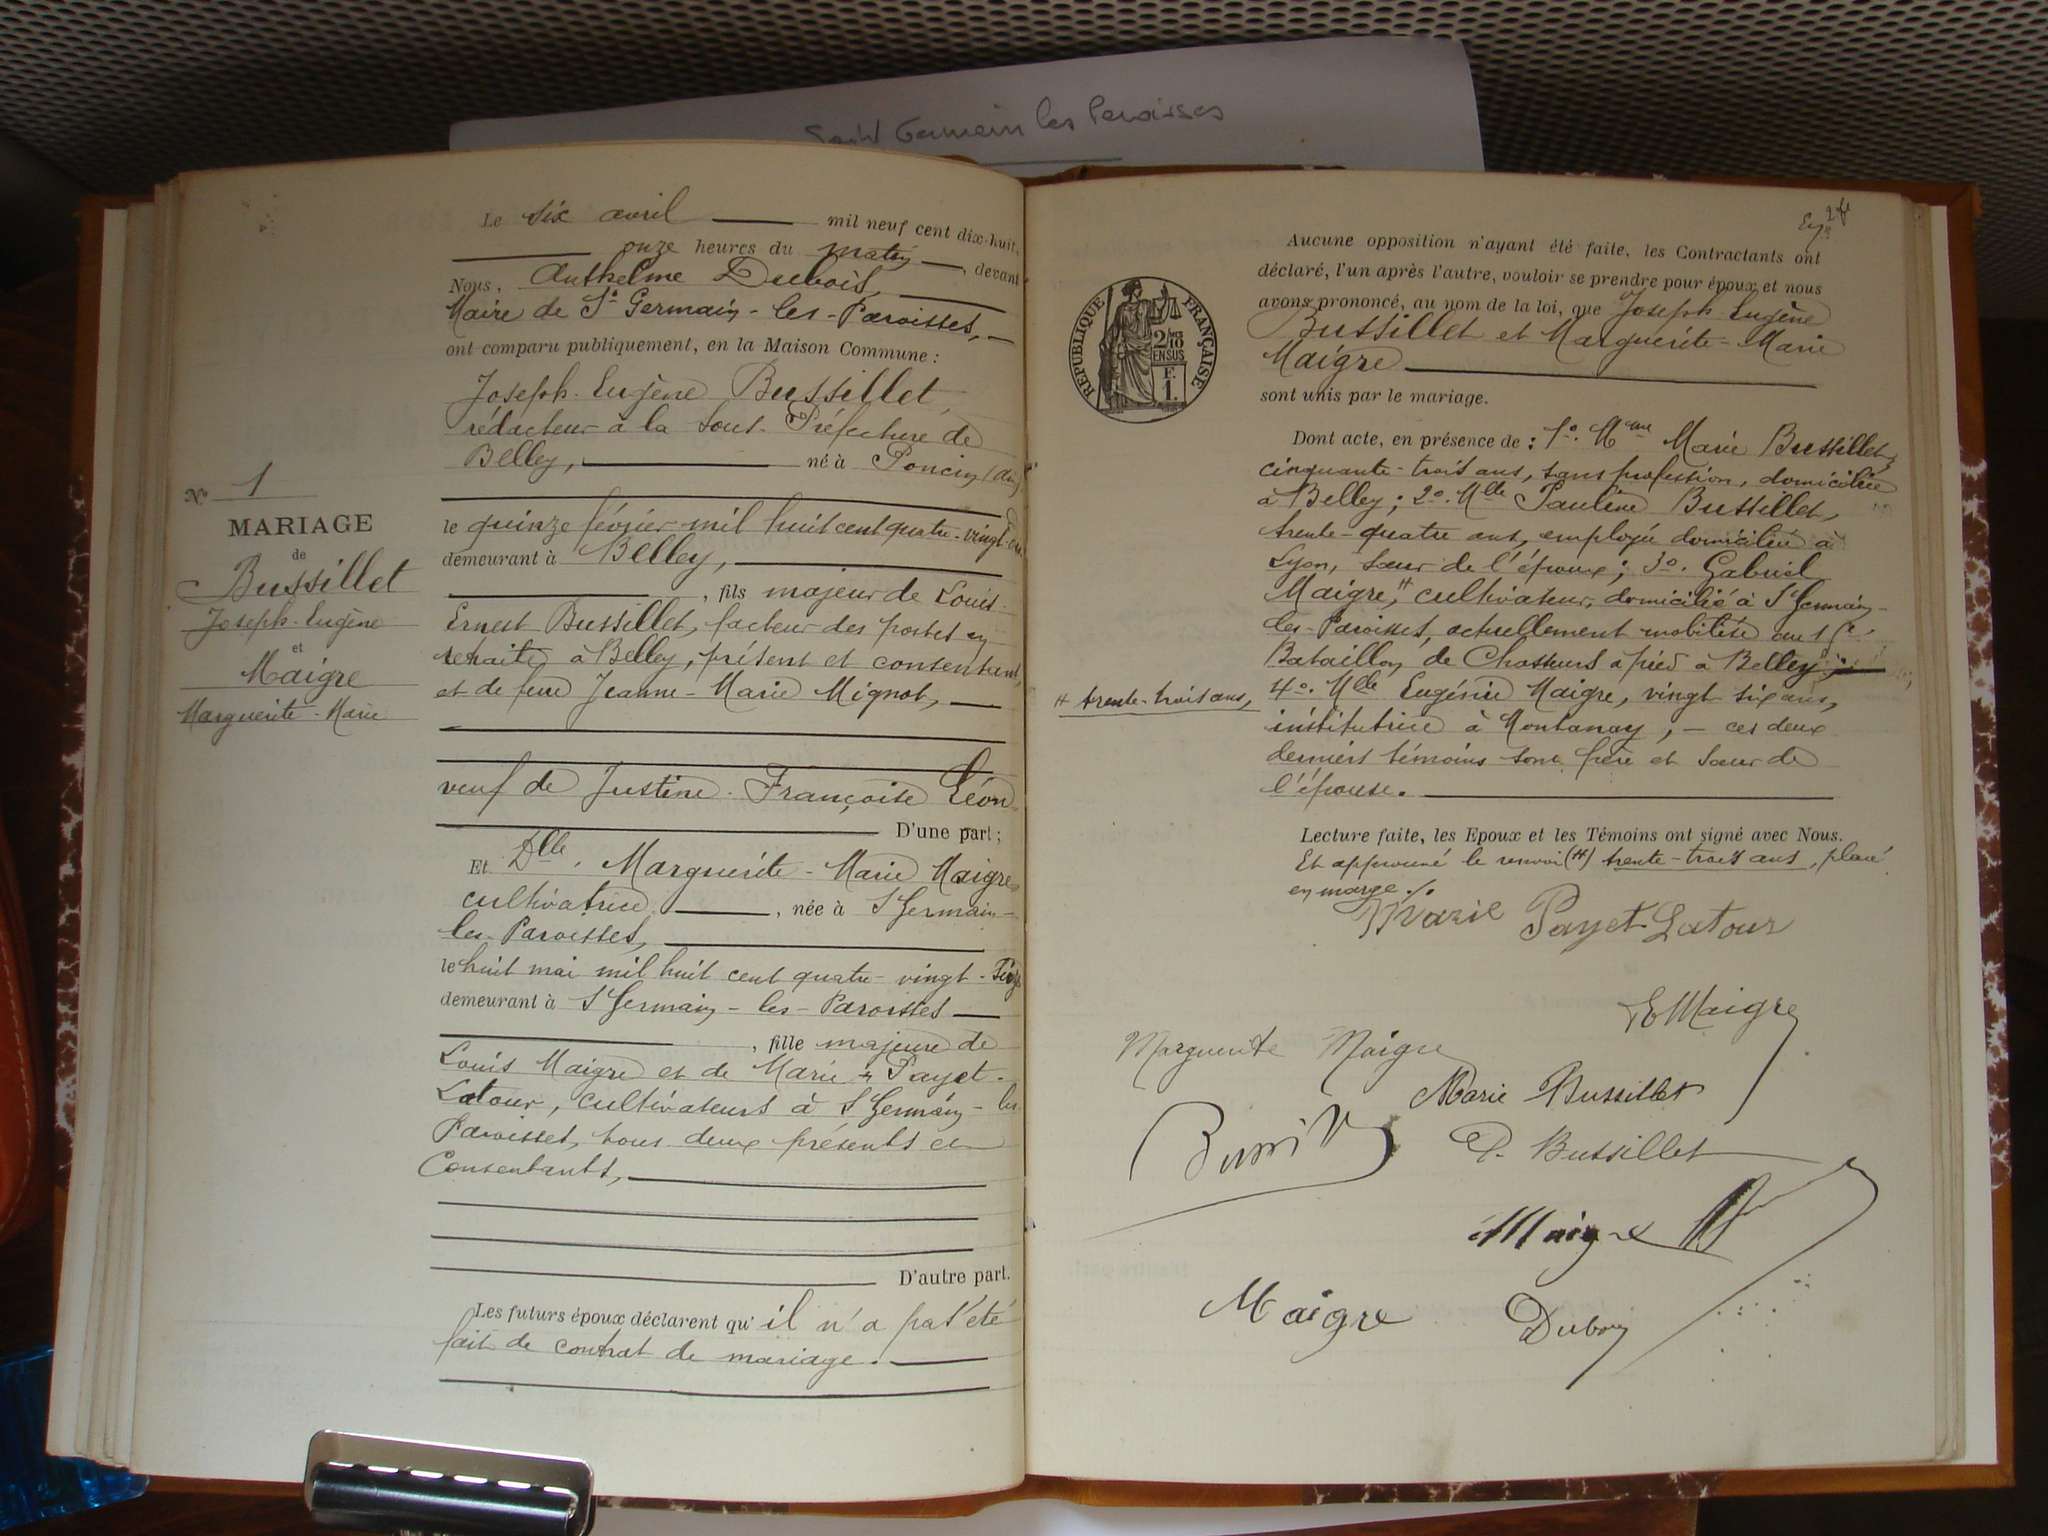 Saint Germain les Paroisses
Le six avril mil neuf cent dix-huit,
onze heures du matin, devant
Nous, Anthelme Dubois,
Maire de St Germain-les-Paroisses,
ont comparu publiquement, en la Maison Commune :
Joseph-Eugène Bussillet,
rédacteur à la Sous-Préfecture de
Belley, né à Poncin (Ain)
le quinze février mil huit cent quatre-vingt-un
demeurant à Belley,
, fils majeur de Louis-
Ernest Bussillet, facteur des postes en
retraite à Belley, présent et consentant,
et de feue Jeanne-Marie Mignot,
veuf de Justine-Françoise Léon
D'une part ;
Et Dlle Marguerite-Marie Maigre
cultivatrice, née à St Germain-
les-Paroisses,
le huit mai mil huit cent quatre-vingt-seize
demeurant à St Germain-les-Paroisses
, fille majeure de
Louis Maigre et de Marie Payet-
Latour, cultivateurs à St Germain-les
Paroisses, tous deux présents et
Consentants,
D'autre part.
Les futurs époux déclarent qu'il n'a pas été
fait de contrat de mariage.
No 1
MARIAGE
de
Bussillet
Joseph-Eugène
et
Maigre
Marguerite-Marie
RÉPUBLIQUE FRANÇAISE
2/10
EN SUS
F.
1.
Aucune opposition n'ayant été faite, les Contractants ont
déclaré, l'un après l'autre, vouloir se prendre pour époux et nous
avons prononcé, au nom de la loi, que Joseph-Eugène
Bussillet et Marguerite-Marie
Maigre
sont unis par le mariage.
Dont acte, en présence de : 1o. Mme Marie Bussillet,
cinquante-trois ans, sans profession, domiciliée
à Belley ; 2o. Mlle Pauline Bussillet,
trente-quatre ans, employée domiciliée à
Lyon, sœur de l'époux ; 3o. Gabriel
Maigre, # cultivateur, domicilié à St Germain-
les-Paroisses, actuellement mobilisé au
Bataillon de Chasseurs à pied à Belley ;
# trente-trois ans,
4o. Mlle Eugénie Maigre, vingt six ans,
institutrice à Montanay, - ces deux
derniers témoins sont frère et sœur de
l'épouse.
Lecture faite, les Epoux et les Témoins ont signé avec Nous.
Et approuvé le renvoi (#) trente-trois ans, placé
en marge ./.
Marie Payet-Latour
E Maigre
Marguerite Maigre
Marie Bussillet
P. Bussillet
Maigre
Maigre
Dubois